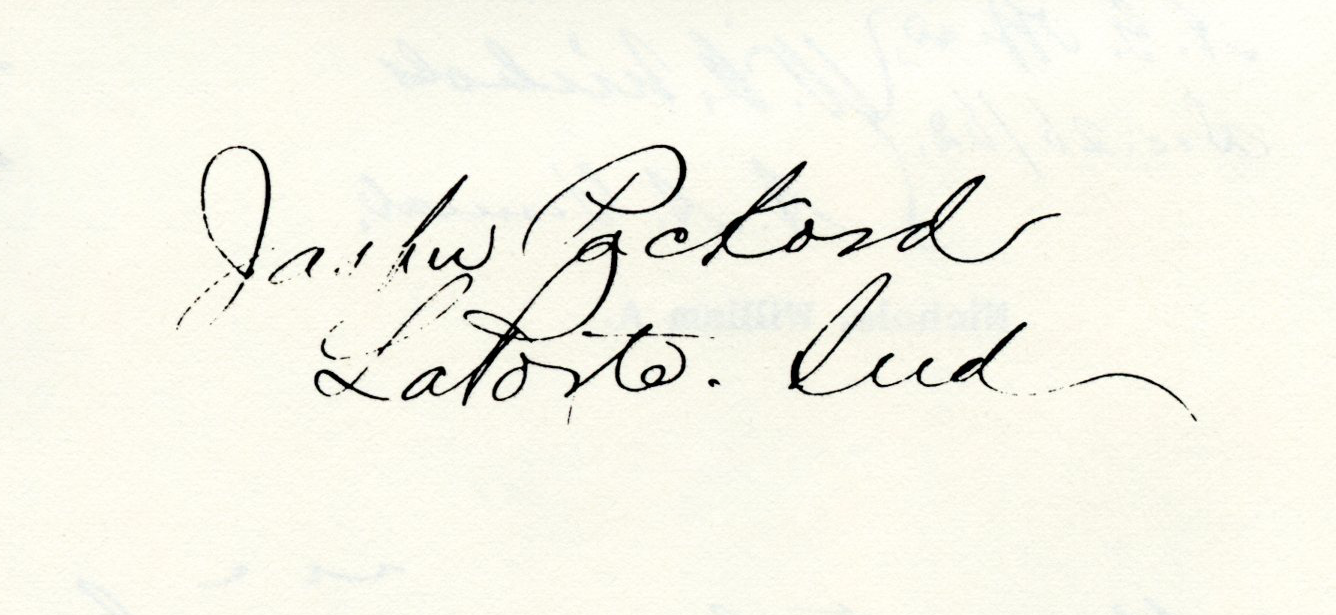 Jasper Packard
LaPorte. Ind